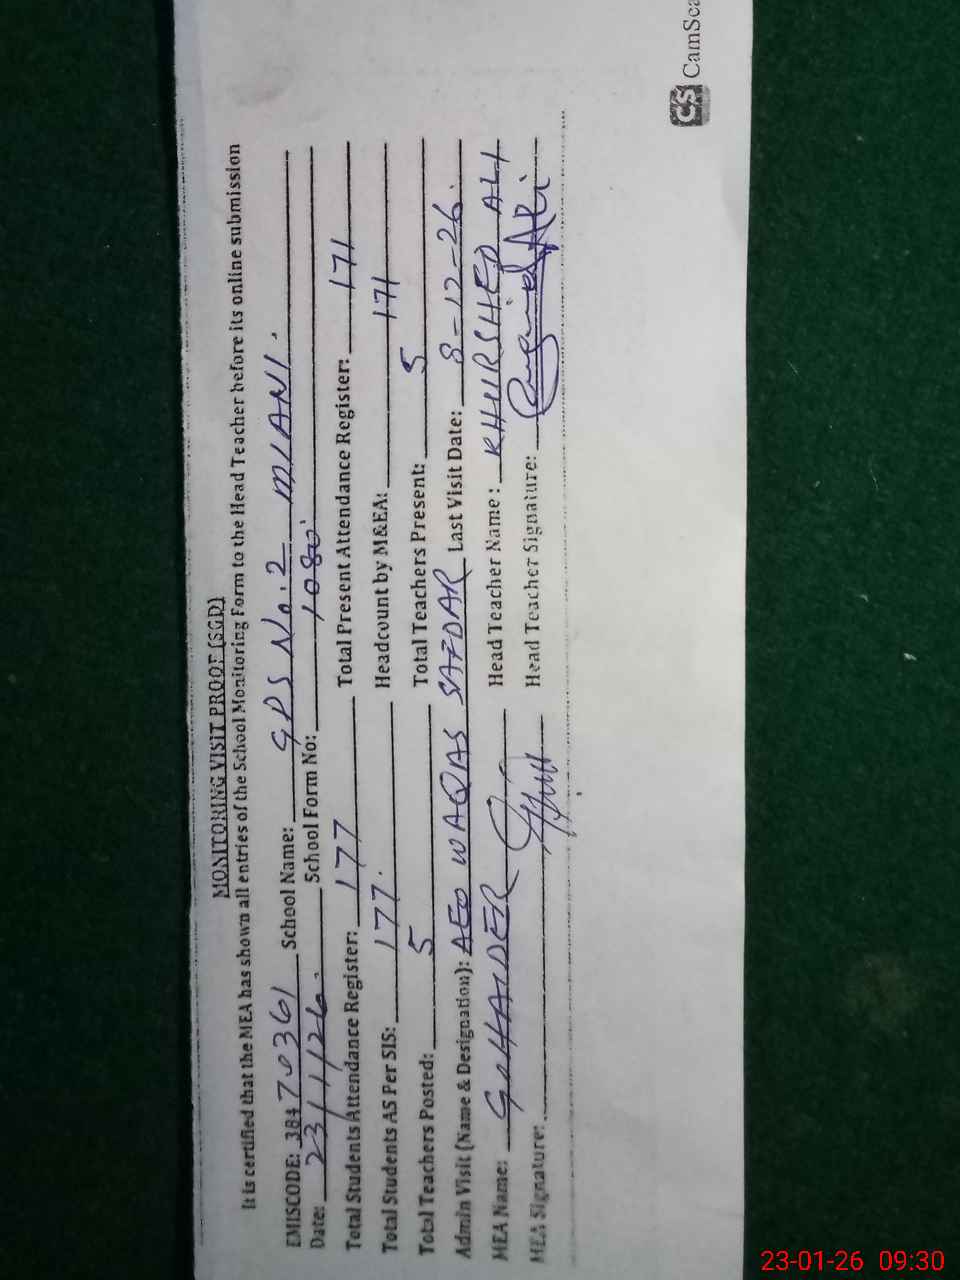 MONITORING VISIT PROOF (SGD)
It is certified that the MEA has shown all entries of the School Monitoring Form to the Head Teacher before its online submission
EMISCODE: 38470361 School Name: GPS No.2 MIANI.
Date: 23/1/26. School Form No: 1080
Total Students Attendance Register: 177 Total Present Attendance Register: 171
Total Students AS Per SIS: 177. Headcount by M&EA: 171
Total Teachers Posted: 5 Total Teachers Present: 5
Admin Visit (Name & Designation): AEO WAQAS SAFDAR Last Visit Date: 8-12-26.
MEA Name: HAIDER Head Teacher Name: KHURSHED ALI
MEA Signature: Head Teacher Signature: Ali
CS CamSca
23-01-26 09:30